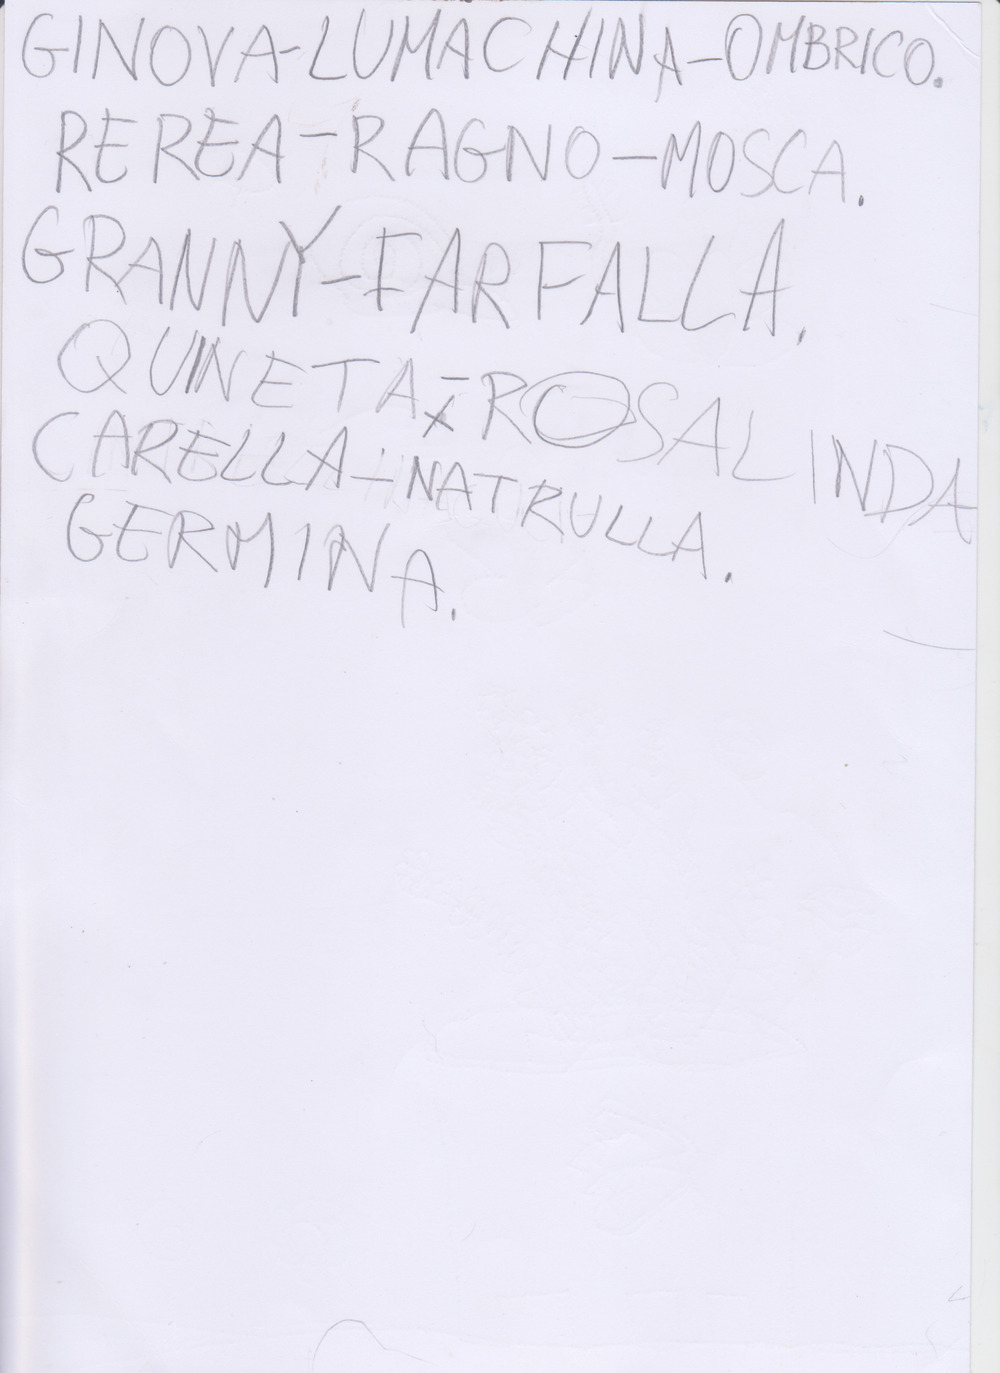 GINOVA-LUMACHINA-OMBRICO.
REREA-RAGNO-MOSCA.
GRANNY-FARFALLA.
QUINETA-ROSALINDA
CARELLA-NATRULLA.
GERMINA.